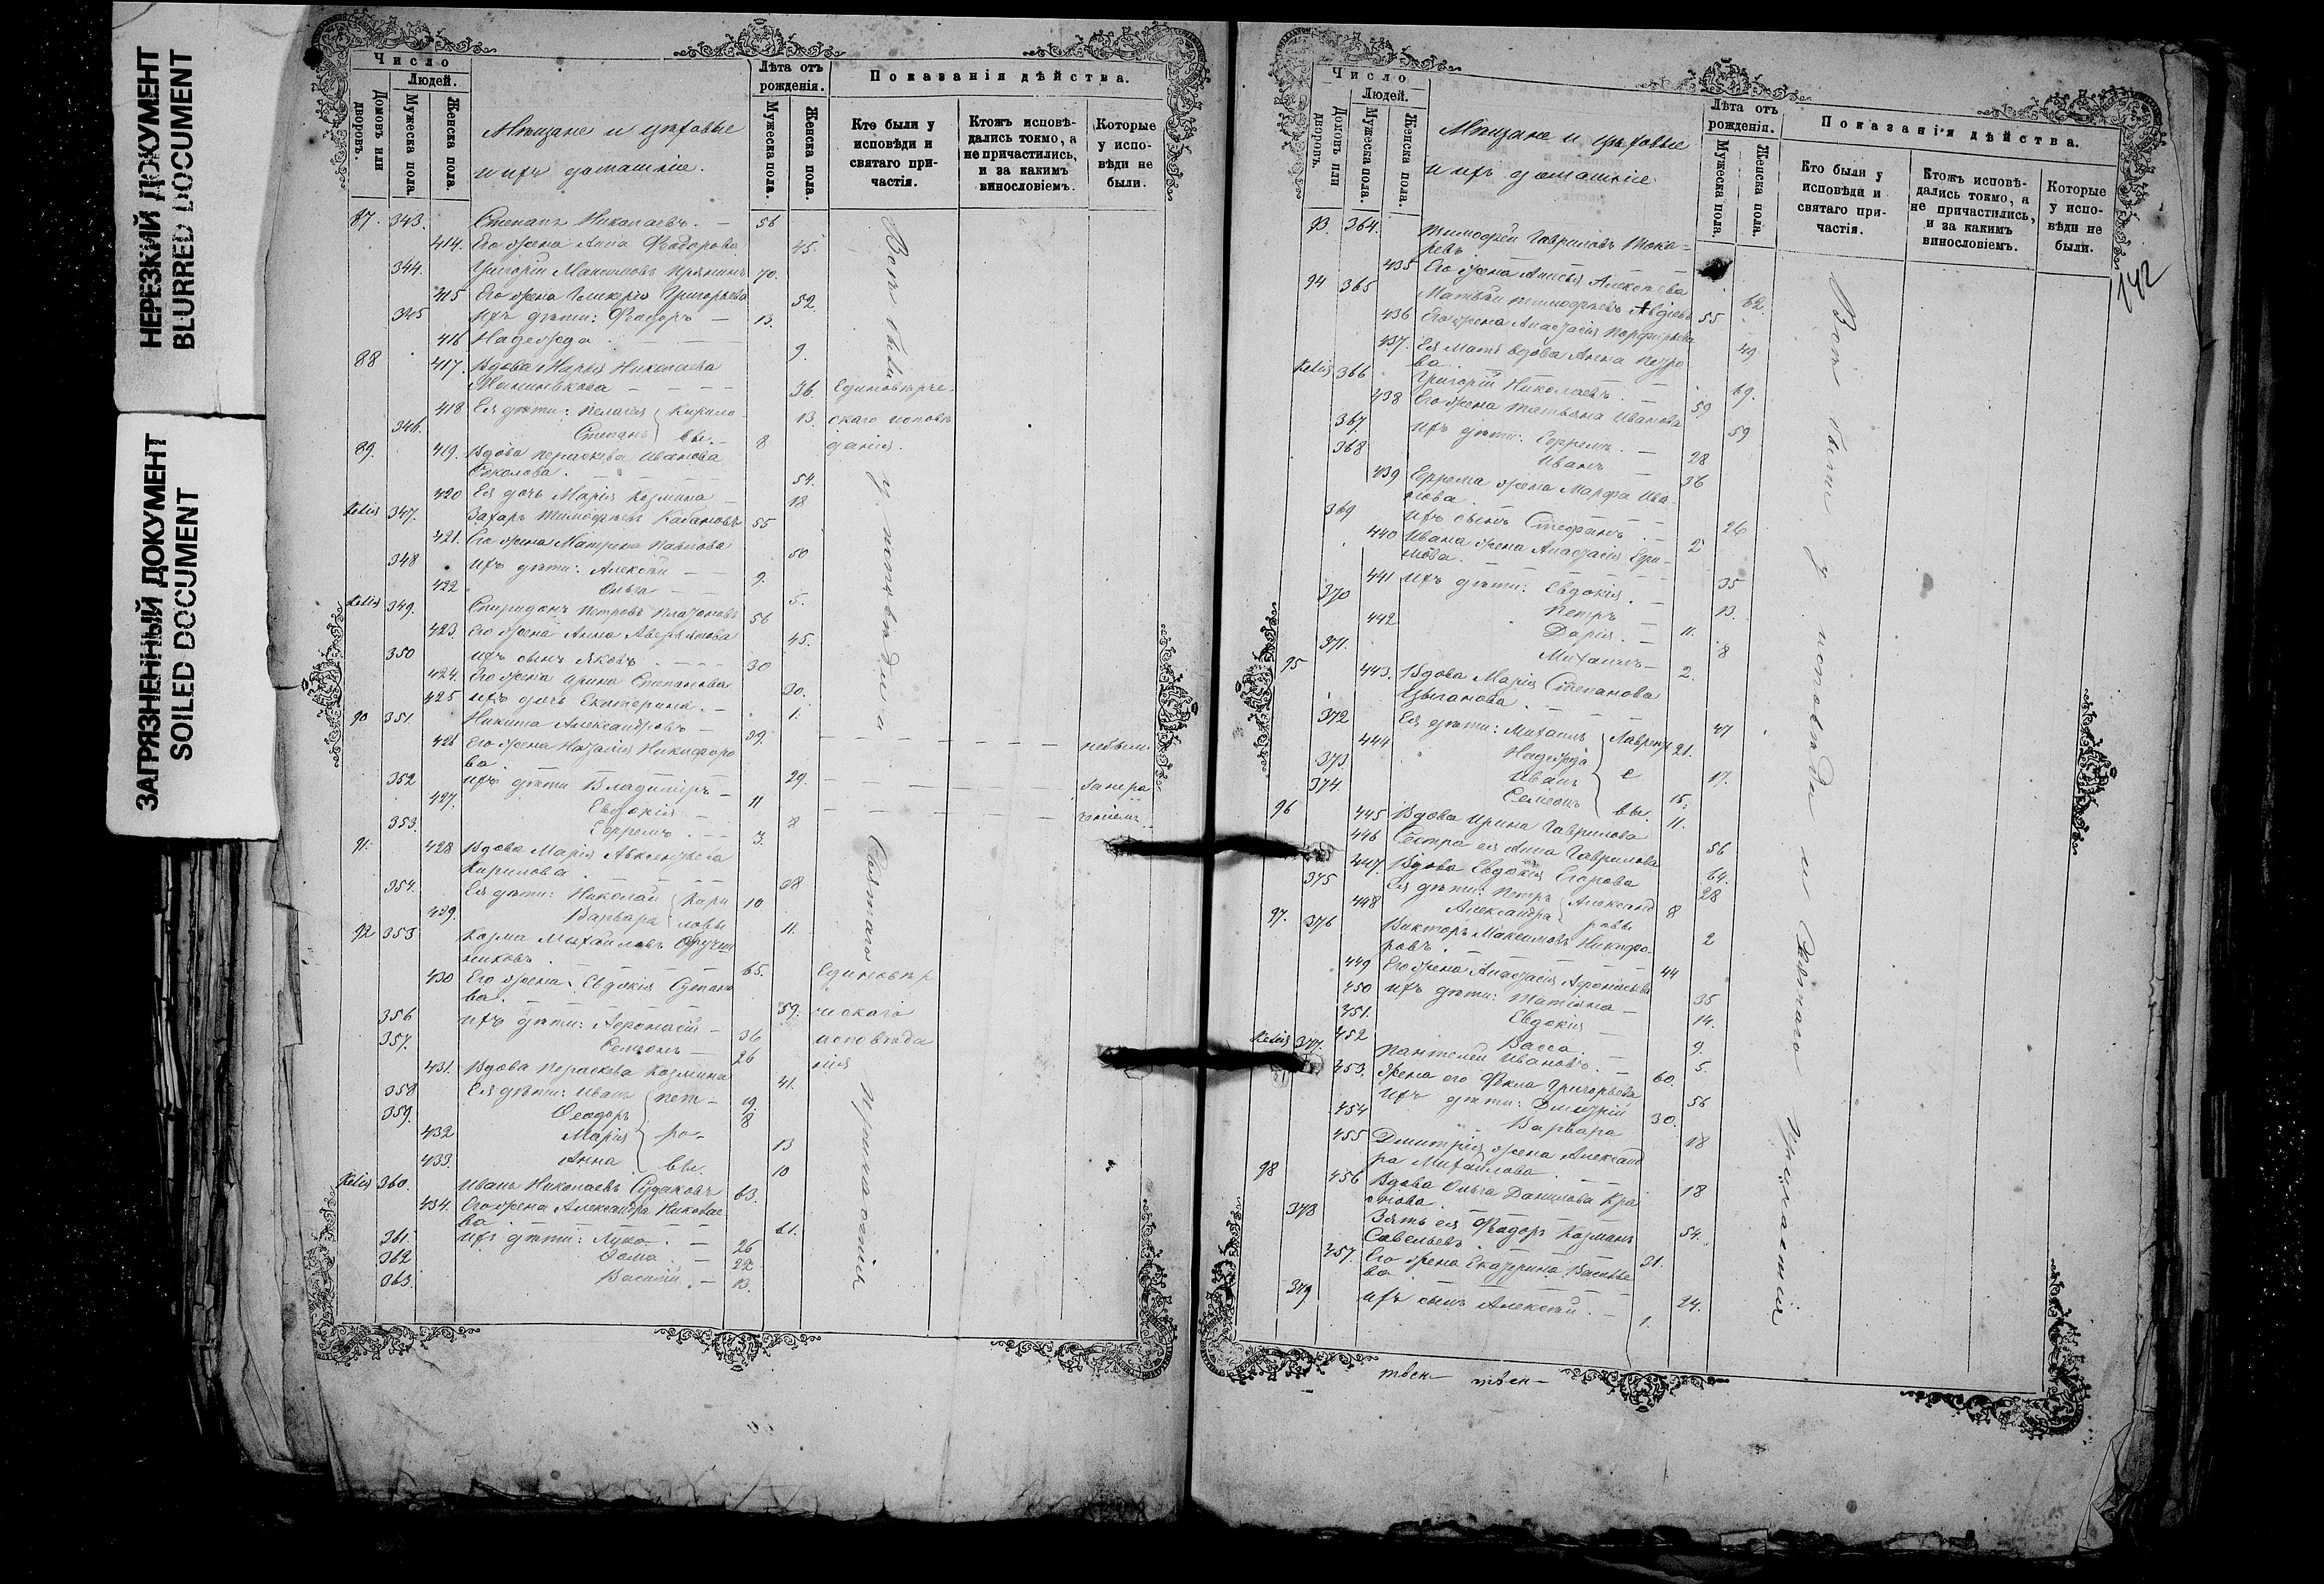 НЕРЕЗКИЙ ДОКУМЕНТ
BLURRED DOCUMENT
ЗАГРЯЗНЕННЫЙ ДОКУМЕНТ
SOILED DOCUMENT
Число
Людей.
Домовъ или дворовъ.
Мужеска пола.
Женска пола.
Мѣщане и цеховые
и ихъ домашніе.
Лѣта отъ рожденія.
Мужеска пола.
Женска пола.
Показанія дѣйства.
Кто были у исповѣди и святаго причастія.
Ктожъ исповѣдались токмо, а не причастились, и за какимъ винословіемъ.
Которые у исповѣди не были.
87. 343. Степанъ Николаевъ. — 56
414. Его жена Анна Ѳедорова 45.
344. Григорій Максимовъ 70.
415 Его жена Гликерія Григорьева 52.
345 Ихъ дѣти: Ѳеодоръ — 13.
416 Надежда 9.
88 417. Вдова Марья Николаева
36. Единовѣрче-
418 Ея дѣти: Пелагея 13. скаго исповѣ
346. Степанъ вы. 8 данія.
89. 419. Вдова Параскева Иванова
Соколова. 54.
420 Ея дочь Марія Козмина 18
Келія 347. Захаръ Тимофѣевъ Кабановъ 55
421. Его жена Матрена Павлова 50
348 Ихъ дѣти: Алексѣй — 9.
422 Ольга 5.
Келія 349. Спиридонъ Петровъ Платоновъ 56
423. Его жена Анна Аверьянова 45.
350 Ихъ сынъ Яковъ. 30
424. Его жена Ирина Степанова 30.
425 Ихъ дочь Екатерина. — 1.
90 351. Никита Александровъ — 39. небыли
426 Его жена Наталія Никифоро
ва. 29.
352 Ихъ дѣти Владиміръ — 11
427. Евдокія 8
353. Ефремъ. 3.
91. 428 Вдова Марія Авксентьева
Кирилова. 38
354. Ея дѣти: Николай Кири 10
429. Варвара ловы 11.
92 355 Козма Михайловъ
никовъ. 65. Единовѣр
430 Его жена Евдокія Степано
ва. 59. ческаго
356 Ихъ дѣти: Афонасій — 36 исповѣда
357. Семіонъ — 26 нія
431. Вдова Параскева Козмина 41.
358 Ея дѣти: Иванъ Пет— 19.
359. Ѳеодоръ 8
432 Марія ро- 13
433. Анна вы. 10
Келія 360. Иванъ Николаевъ Судаковъ 63.
434. Его жена Александра Николае
ва. 61.
361. Ихъ дѣти: Лука. — 26
362 Ѳома — 22
363. Василій. — 13.
Всѣ были у исповѣди и Святаго Причастія
142
Число
Людей.
Домовъ или дворовъ.
Мужеска пола.
Женска пола.
Мѣщане и цеховые
и ихъ домашніе.
Лѣта отъ рожденія.
Мужеска пола.
Женска пола.
Показанія дѣйства.
Кто были у исповѣди и святаго причастія.
Ктожъ исповѣдались токмо, а не причастились, и за какимъ винословіемъ.
Которые у исповѣди не были.
93. 364. Тимофей Гавриловъ Тока-
ревъ
435 Его жена Анисья Алексѣева 62.
94 365 Матвѣй Тимофѣевъ Авдіевъ 55
436 Его жена Анастасія Порфирьева 49
437. Ея мать вдова Анна Петро
ва. 69.
Келія 366 Григорій Николаевъ. — 59
438 Его жена Татьяна Иванова 59
367. Ихъ дѣти: Ефремъ. — 28
368 Иванъ 36
439 Ефрема жена Марфа Ива-
нова. 26
369 Ихъ сынъ Стефанъ. 2
440 Ивана жена Анастасія Ефи-
мова. 35
441 Ихъ дѣти: Евдокія. 13.
370 Петръ 11.
442 Дарія. 8
371. Михаилъ — 2.
95 443. Вдова Марія Степанова
Цыганова. 47
372 Ея дѣти: Михаилъ Лаврент 21.
444 Надежда 17.
373 Иванъ е 15.
374. Семіонъ вы. 11.
96 445 Вдова Ирина Гаврилова 56
446 Сестра ея Анна Гаврилова 64.
447. Вдова Евдокія Егорова 28
375 Ея дѣти: Петръ Александ 8
448 Александра ровы 2
97. 376 Викторъ Максимовъ Никифо-
ровъ. 44
449 Его жена Анастасія Афонасьева 35
450 Ихъ дѣти: Татіяна — 14.
351. Евдокія 9.
452 Васса. 5.
Келія 377. Пантелей Ивановъ. 60.
453. Жена его Ѳекла Григорьева 56
Ихъ дѣти: Дмитрій 30.
454 Варвара 18
455 Дмитрія жена Александ
ра Михайлова. 18
98 456 Вдова Ольга Данилова Кра
снова. 54.
378 Зять ея Ѳедоръ Козминъ
Савельевъ. 31.
357. Его жена Екатерина Василье
ва 24.
379 Ихъ сынъ Алексѣй. 1.
Всѣ были у исповѣди и Святаго Причастія